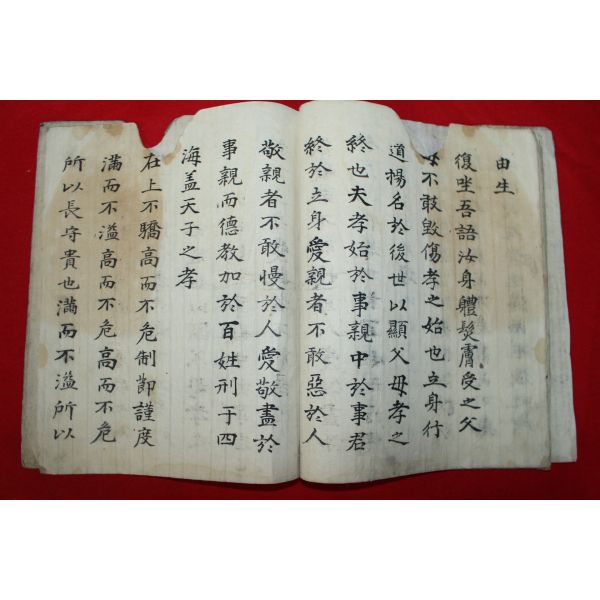 由生
復坐吾語汝身軆髮膚受之父
母不敢毁傷孝之始也立身行
道揚名於後世以顯父母孝之
終也夫孝始於事親中於事君
終於立身愛親者不敢惡於人
敬親者不敢慢於人愛敬盡於
事親而德教加於百姓刑于四
海盖天子之孝
在上不驕高而不危制節謹度
滿而不溢高而不危高而不危
所以長守貴也滿而不溢所以